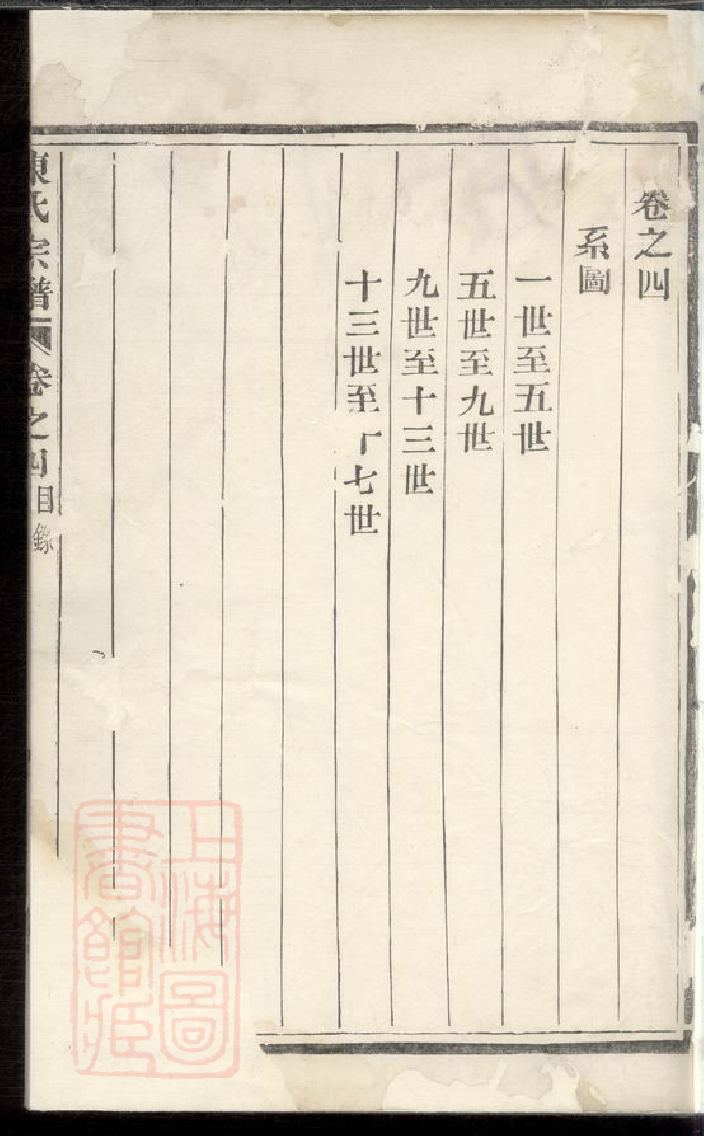 卷之四
系圖
一世至五世
五世至九世
九世至十三世
十三世至十七世
陳氏宗譜 卷之四目錄
上海圖書館藏